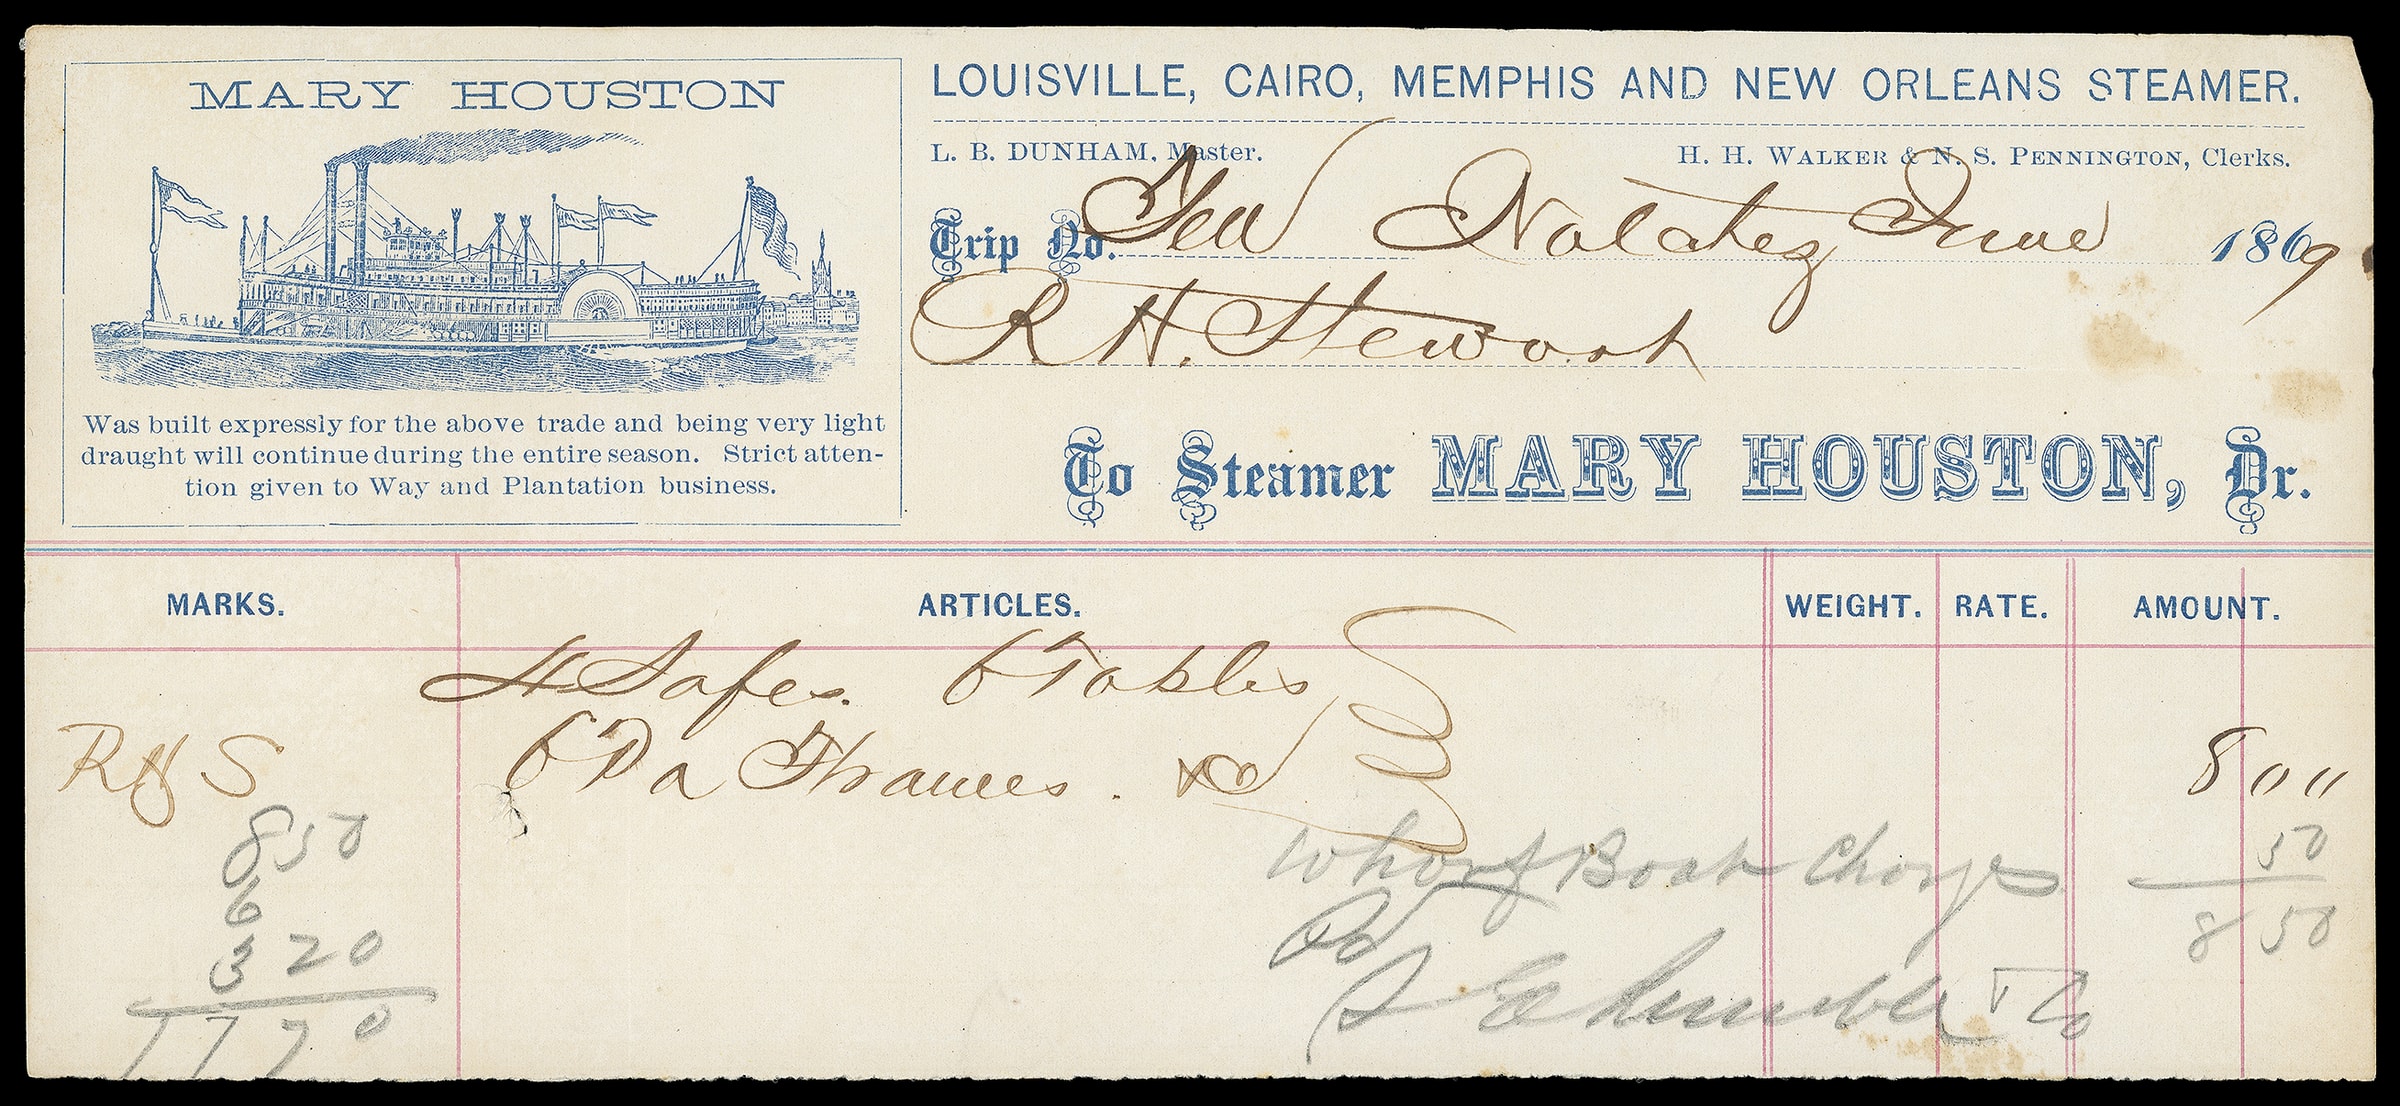 MARY HOUSTON
Was built expressly for the above trade and being very light
draught will continue during the entire season. Strict atten-
tion given to Way and Plantation business.
LOUISVILLE, CAIRO, MEMPHIS AND NEW ORLEANS STEAMER.
L. B. DUNHAM, Master. H. H. WALKER & N. S. PENNINGTON, Clerks.
Trip No. Ten Natchez June 1869
R. H. Stewart
To Steamer MARY HOUSTON, Dr.
MARKS. ARTICLES. WEIGHT. RATE. AMOUNT.
4 Safes. 6 Tables
RHS 6 Da Frames. &c 8 00
850 Wharf Boat Charges 50
6 Pd 8 50
3 20
17 70 & Co